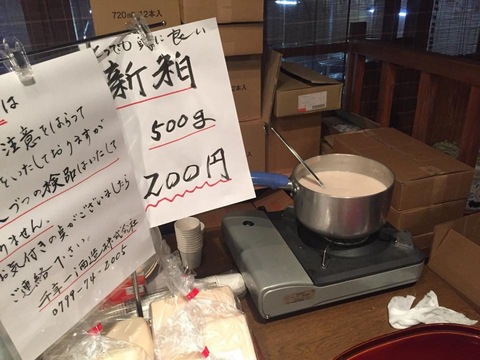 720ml 12本入
とっても身体に良い
新粕
500g
200円
は
注意をはらって
いたしておりますが
つづつの検品はいたして
りません。
お気付きの点がございましたら
ご連絡下さい。
千年一酒造株式会社
0799-74-2005